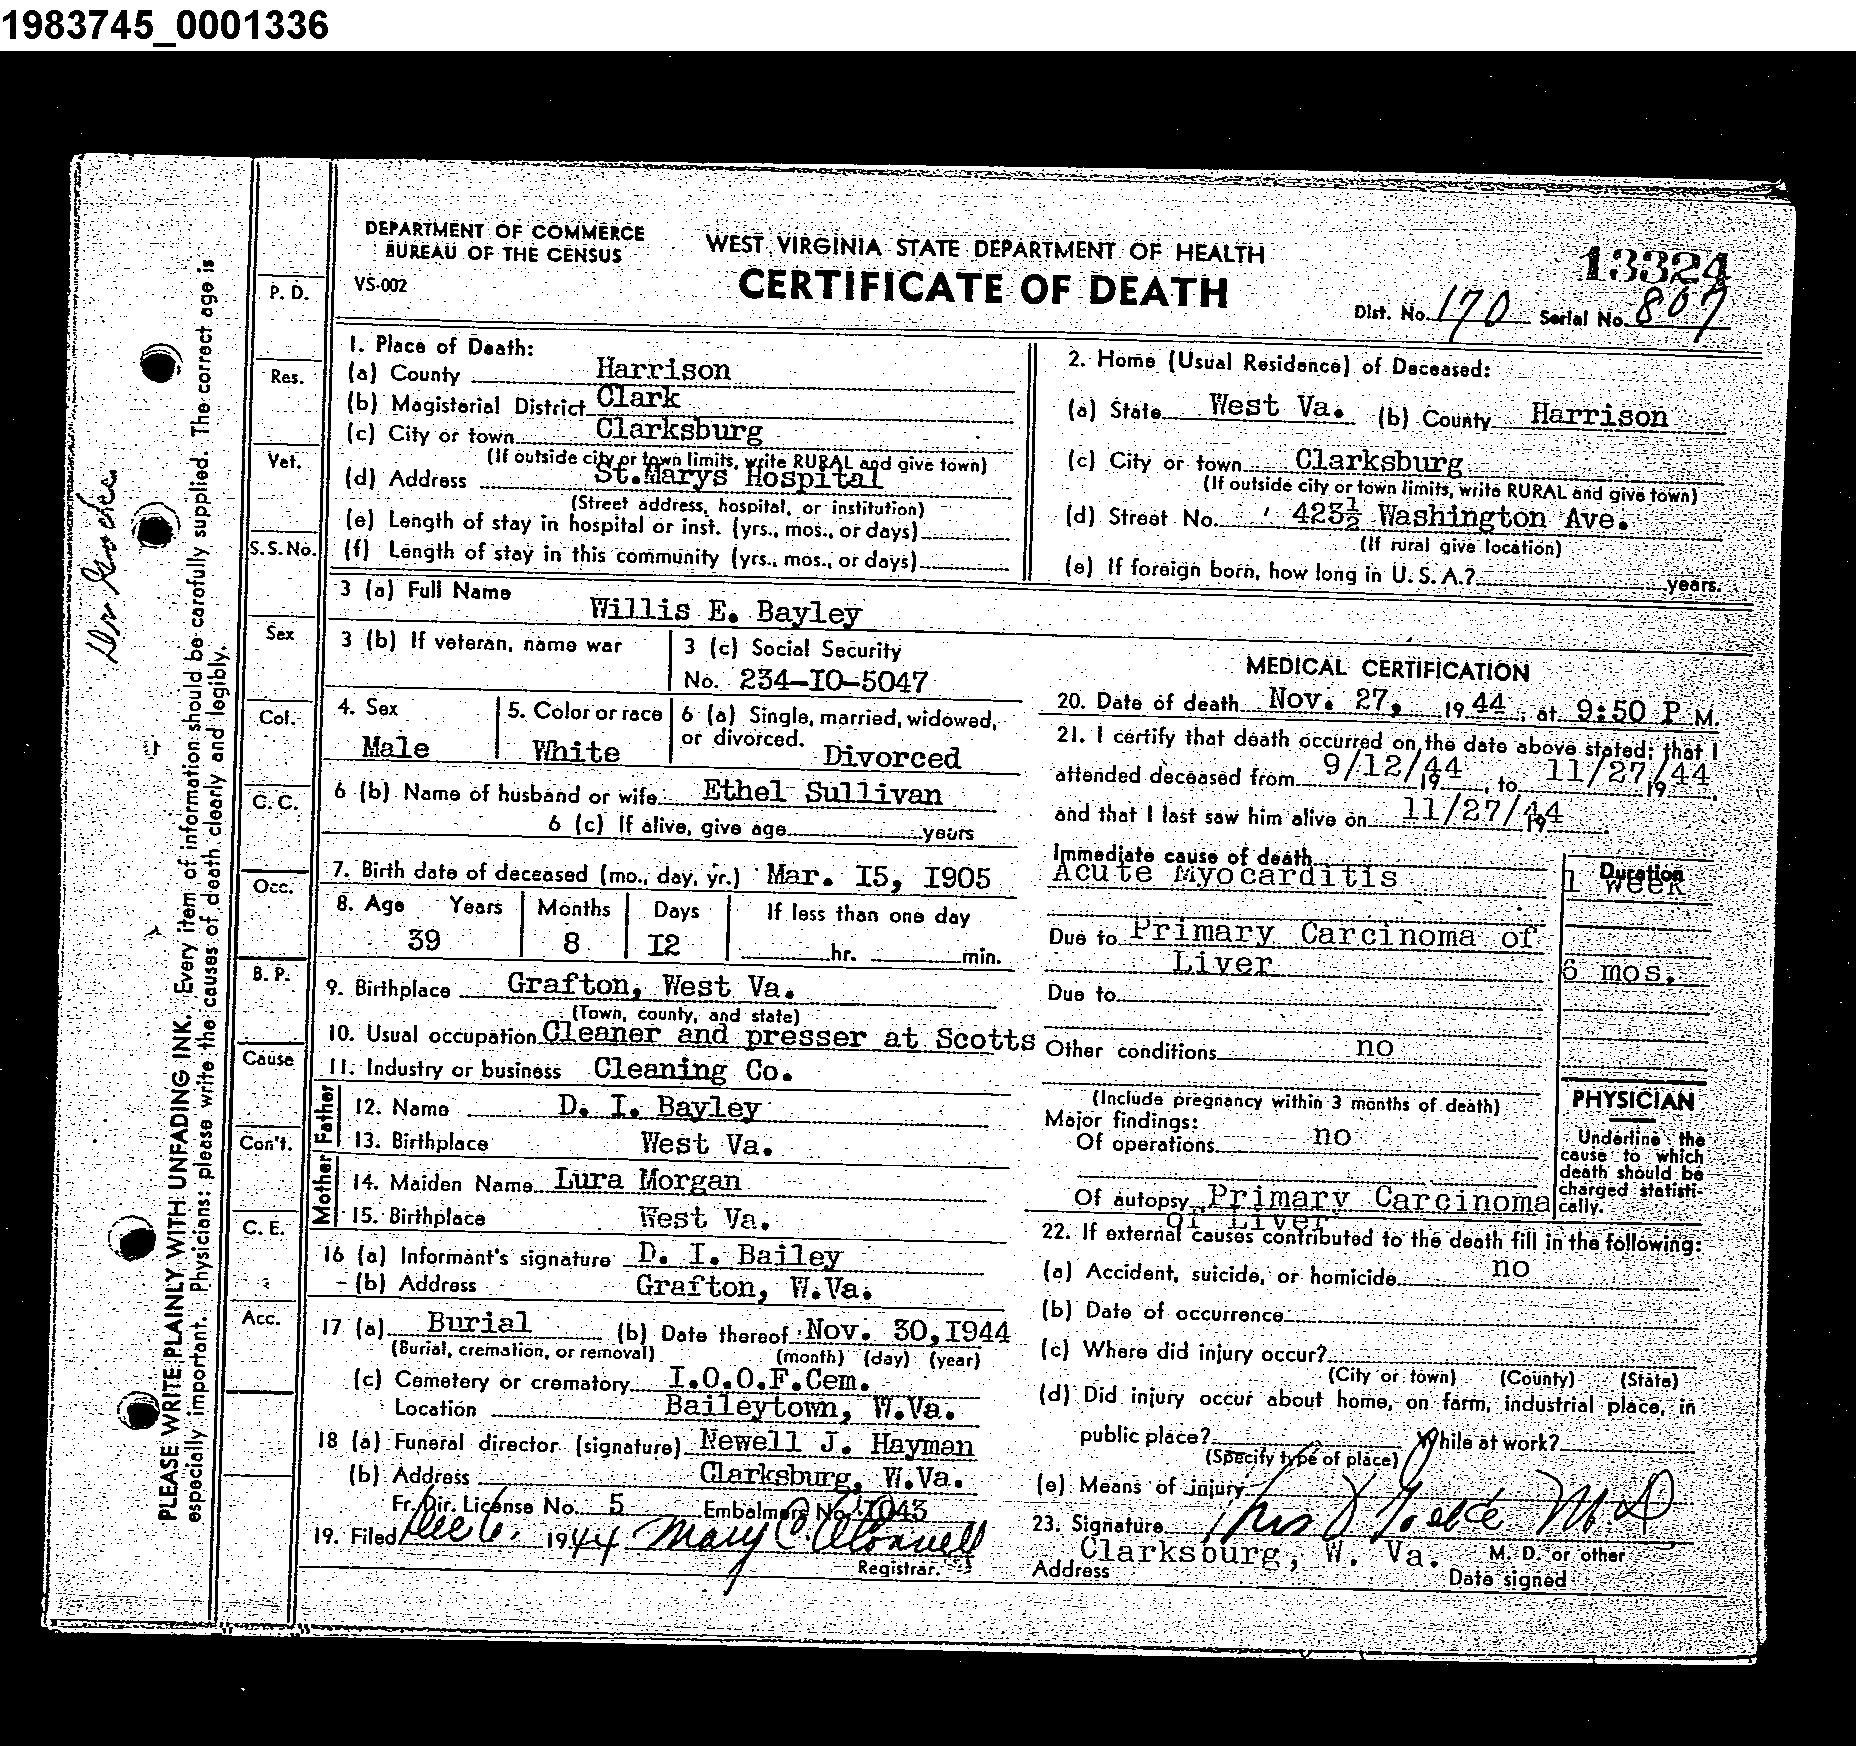 1983745_0001336
DEPARTMENT OF COMMERCE
BUREAU OF THE CENSUS
VS-002
WEST VIRGINIA STATE DEPARTMENT OF HEALTH
CERTIFICATE OF DEATH
13324
Dist. No. 170 Serial No. 807
1. Place of Death:
(a) County Harrison
(b) Magisterial District Clark
(c) City or town Clarksburg
(If outside city or town limits, write RURAL and give town)
(d) Address St.Marys Hospital
(Street address, hospital, or institution)
(e) Length of stay in hospital or inst. (yrs., mos., or days)
(f) Length of stay in this community (yrs., mos., or days)
2. Home (Usual Residence) of Deceased:
(a) State West Va. (b) County Harrison
(c) City or town Clarksburg
(If outside city or town limits, write RURAL and give town)
(d) Street No. 423½ Washington Ave.
(If rural give location)
(e) If foreign born, how long in U.S.A.? years.
3 (a) Full Name Willis E. Bayley
3 (b) If veteran, name war
3 (c) Social Security
No. 234-IO-5047
4. Sex Male
5. Color or race White
6 (a) Single, married, widowed,
or divorced. Divorced
6 (b) Name of husband or wife Ethel Sullivan
6 (c) If alive, give age years
7. Birth date of deceased (mo., day, yr.) Mar. I5, I905
8. Age Years Months Days If less than one day
39 8 I2 hr. min.
9. Birthplace Grafton, West Va.
(Town, county, and state)
10. Usual occupation Cleaner and presser at Scotts
11. Industry or business Cleaning Co.
Father
12. Name D. I. Bayley
13. Birthplace West Va.
Mother
14. Maiden Name Lura Morgan
15. Birthplace West Va.
16 (a) Informant's signature D. I. Bailey
(b) Address Grafton, W.Va.
17 (a) Burial (b) Date thereof Nov. 30, I944
(Burial, cremation, or removal) (month) (day) (year)
(c) Cemetery or crematory I.O.O.F.Cem.
Location Baileytown, W.Va.
18 (a) Funeral director (signature) Newell J. Hayman
(b) Address Clarksburg, W.Va.
Fr. Dir. License No. 5 Embalmers No. I043
19. Filed Dec 6, 1944 Mary C. O'Connell
Registrar.
MEDICAL CERTIFICATION
20. Date of death Nov. 27, 1944, at 9:50 P M.
21. I certify that death occurred on the date above stated; that I
attended deceased from 9/12/44 19, to 11/27/44 19
and that I last saw him alive on 11/27/44 19
Immediate cause of death Duration
Acute Myocarditis 1 week
Due to Primary Carcinoma of
Liver 6 mos.
Due to
Other conditions no
(Include pregnancy within 3 months of death)
Major findings:
Of operations no
Of autopsy Primary Carcinoma
of Liver
PHYSICIAN
Underline the
cause to which
death should be
charged statisti-
cally.
22. If external causes contributed to the death fill in the following:
(a) Accident, suicide, or homicide no
(b) Date of occurrence
(c) Where did injury occur?
(City or town) (County) (State)
(d) Did injury occur about home, on farm, industrial place, in
public place? While at work?
(Specify type of place)
(e) Means of injury
23. Signature M.D.
M. D. or other
Address Clarksburg, W. Va.
Date signed
P. D.
Res.
Vet.
S.S.No.
Sex
Col.
C. C.
Occ.
B. P.
Cause
Con't.
C. E.
Acc.
PLEASE WRITE PLAINLY WITH UNFADING INK. Every item of information should be carefully supplied. The correct age is
especially important. Physicians: please write the causes of death clearly and legibly.